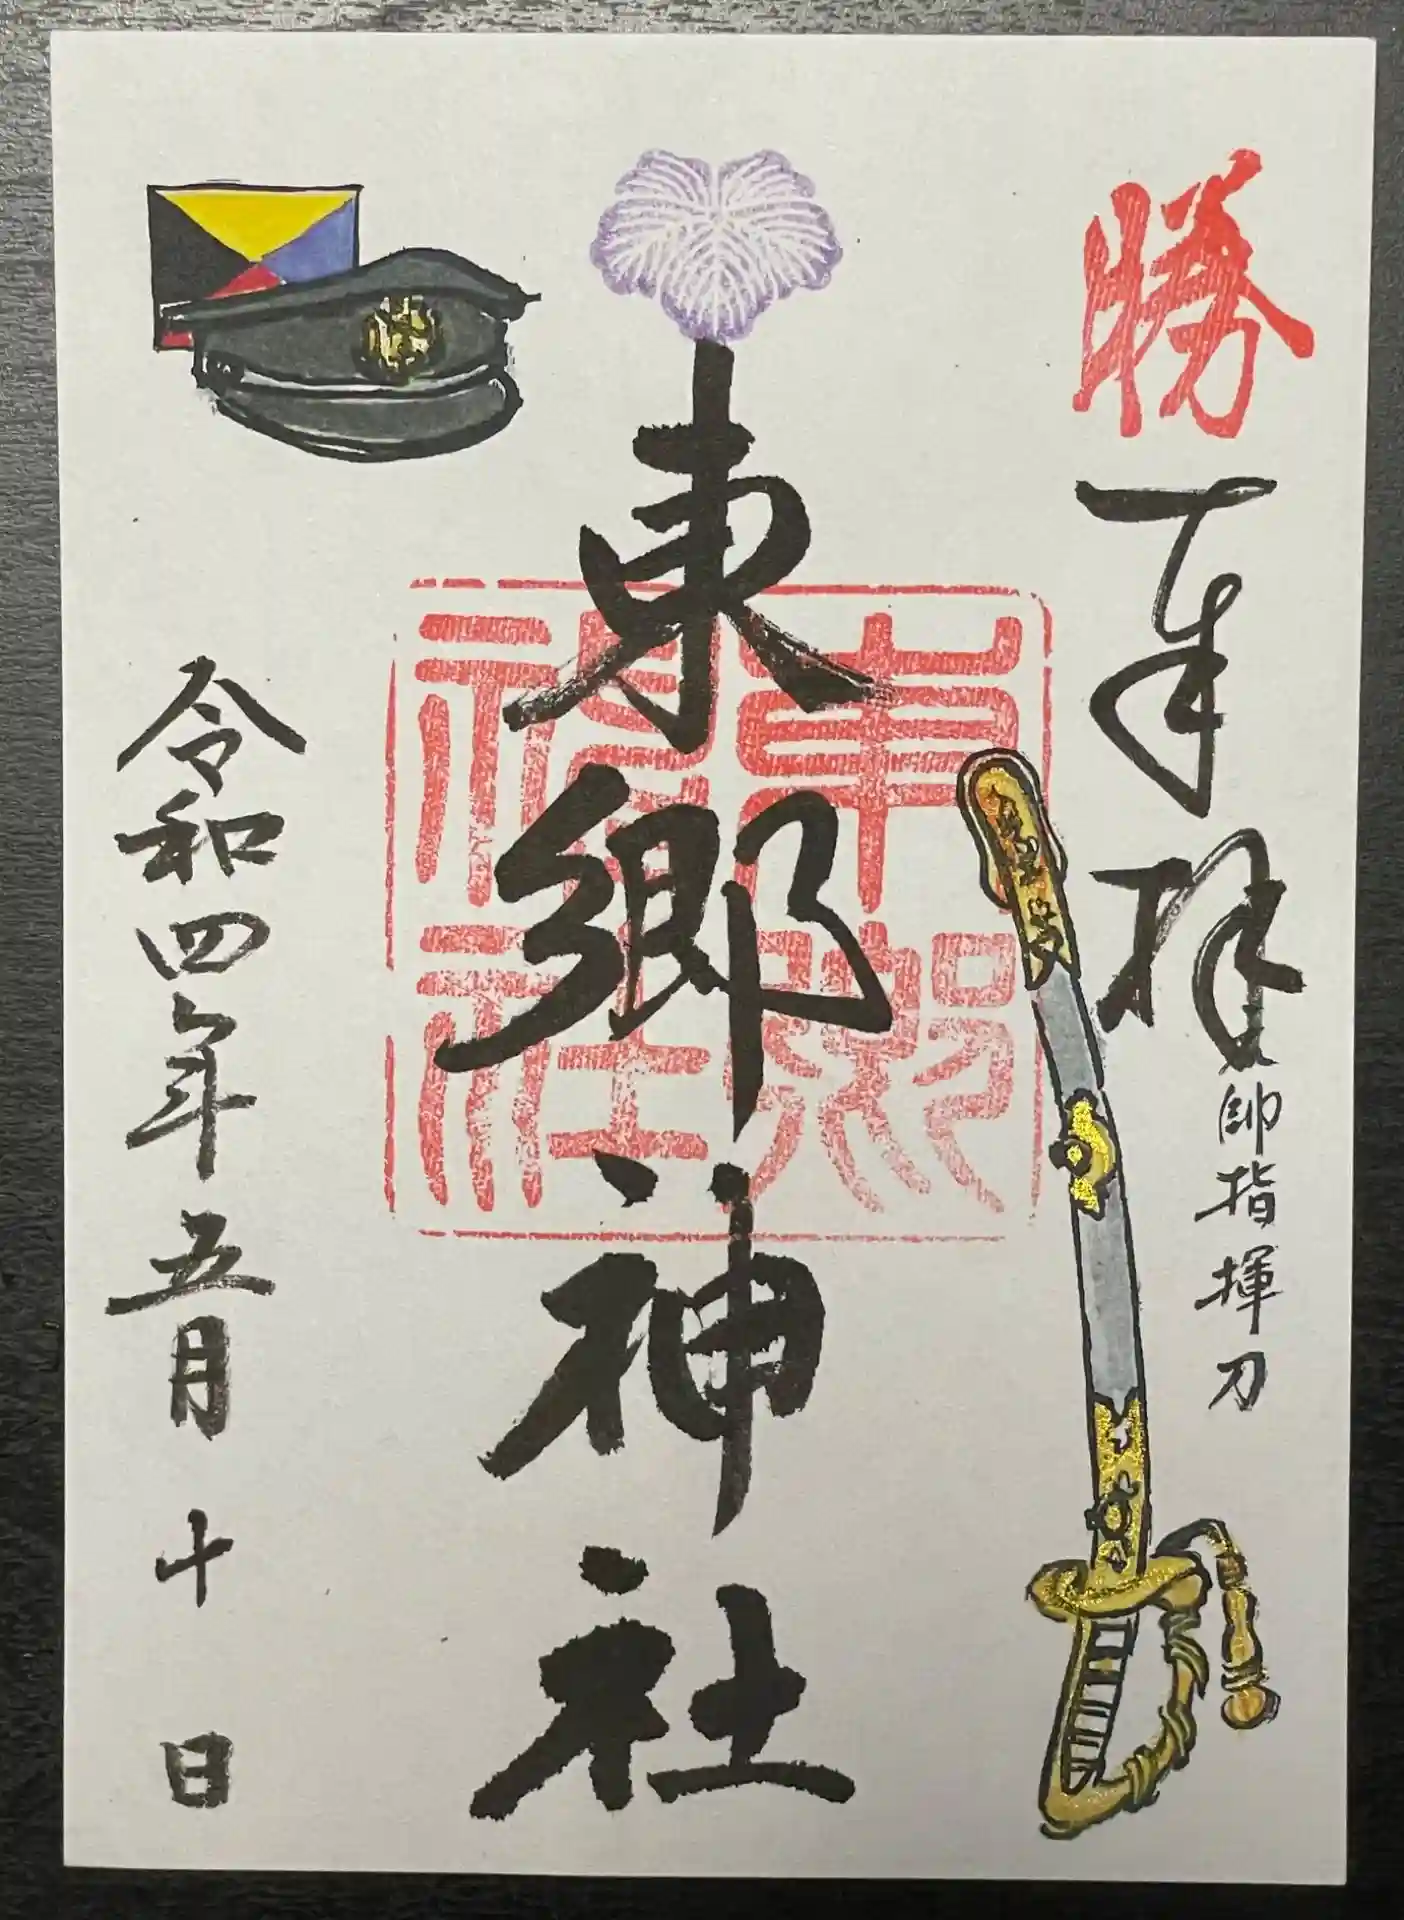 勝
奉拝
元帥指揮刀
東郷神社
東郷神社
令和四年五月十日